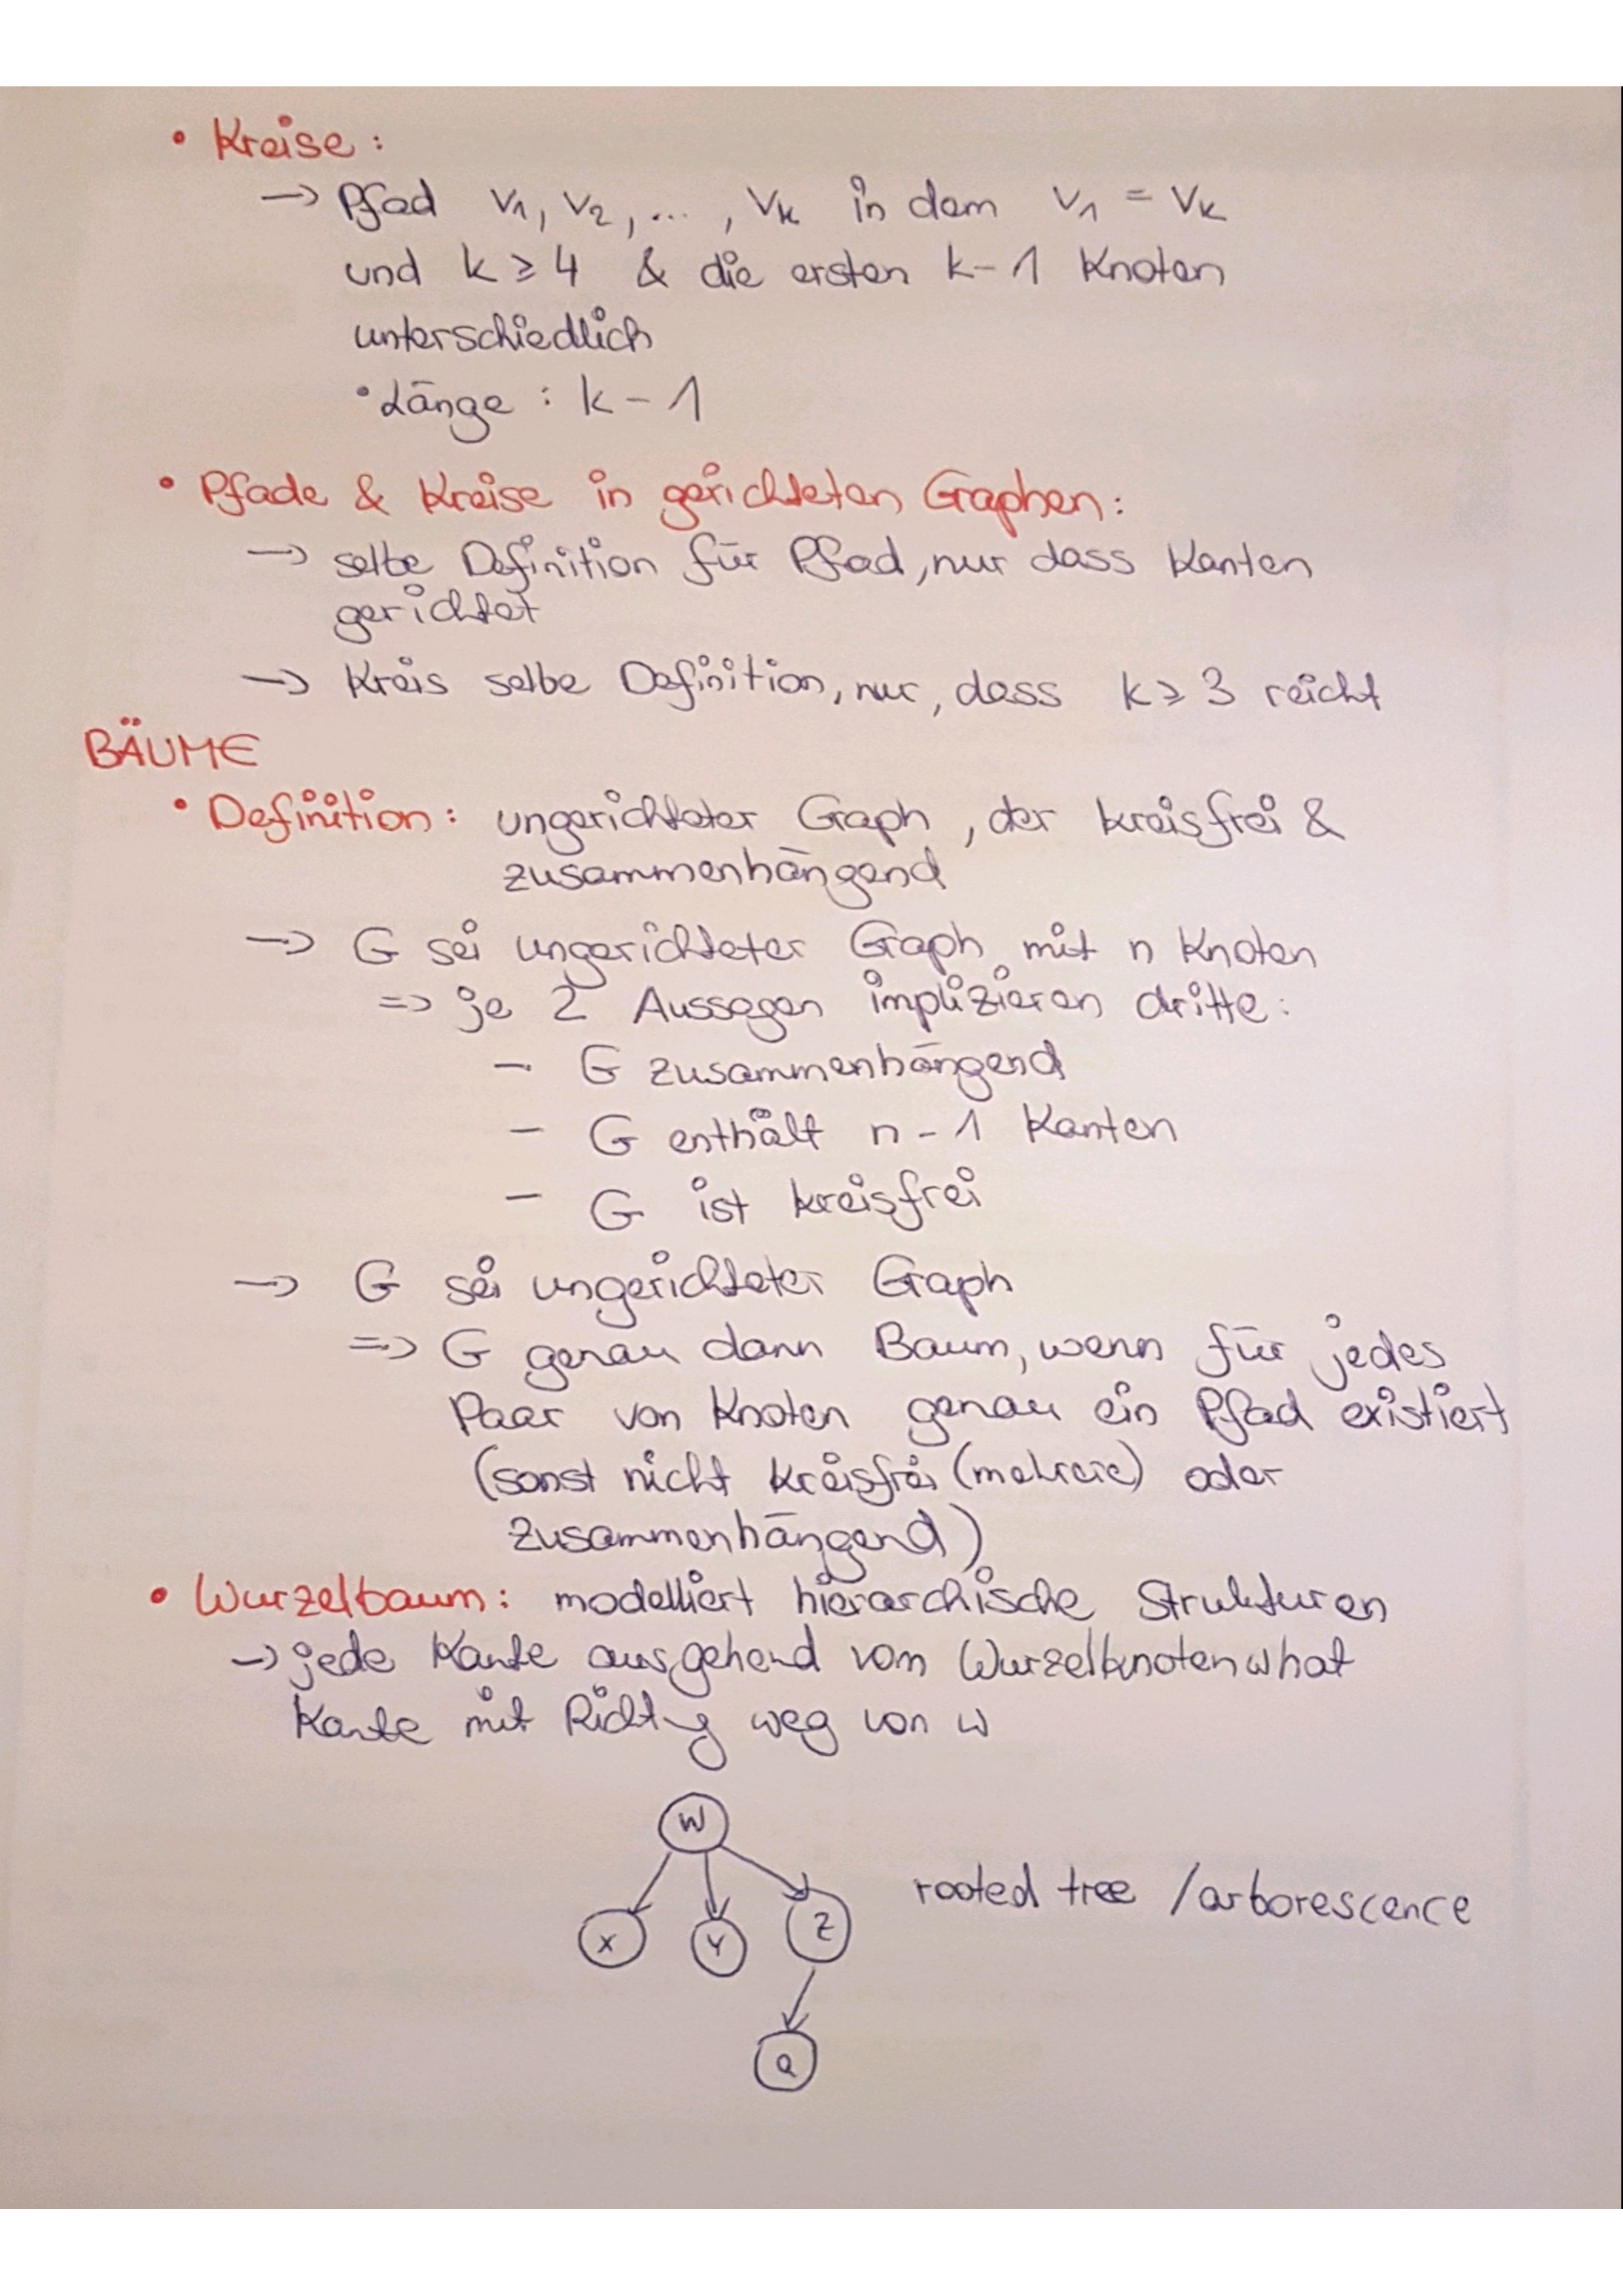 • Kreise :
→ Pfad v₁, v₂, ... , vₖ in dem v₁ = vₖ
und k ≥ 4 & die ersten k-1 Knoten
unterschiedlich
• Länge : k - 1
• Pfade & Kreise in gerichteten Graphen :
→ selbe Definition für Pfad, nur dass Kanten
gerichtet
→ Kreis selbe Definition, nur, dass k ≥ 3 reicht
BÄUME
• Definition : ungerichteter Graph, der kreisfrei &
zusammenhängend
→ G sei ungerichteter Graph mit n Knoten
=> je 2 Aussagen implizieren dritte :
- G zusammenhängend
- G enthält n - 1 Kanten
- G ist kreisfrei
→ G sei ungerichteter Graph
=> G genau dann Baum, wenn für jedes
Paar von Knoten genau ein Pfad existiert
(sonst nicht kreisfrei (mehrere) oder
zusammenhängend)
• Wurzelbaum : modelliert hierarchische Strukturen
→ jede Kante ausgehend vom Wurzelknoten w hat
Kante mit Richtung weg von w
W
X Y Z rooted tree / arborescence
Q